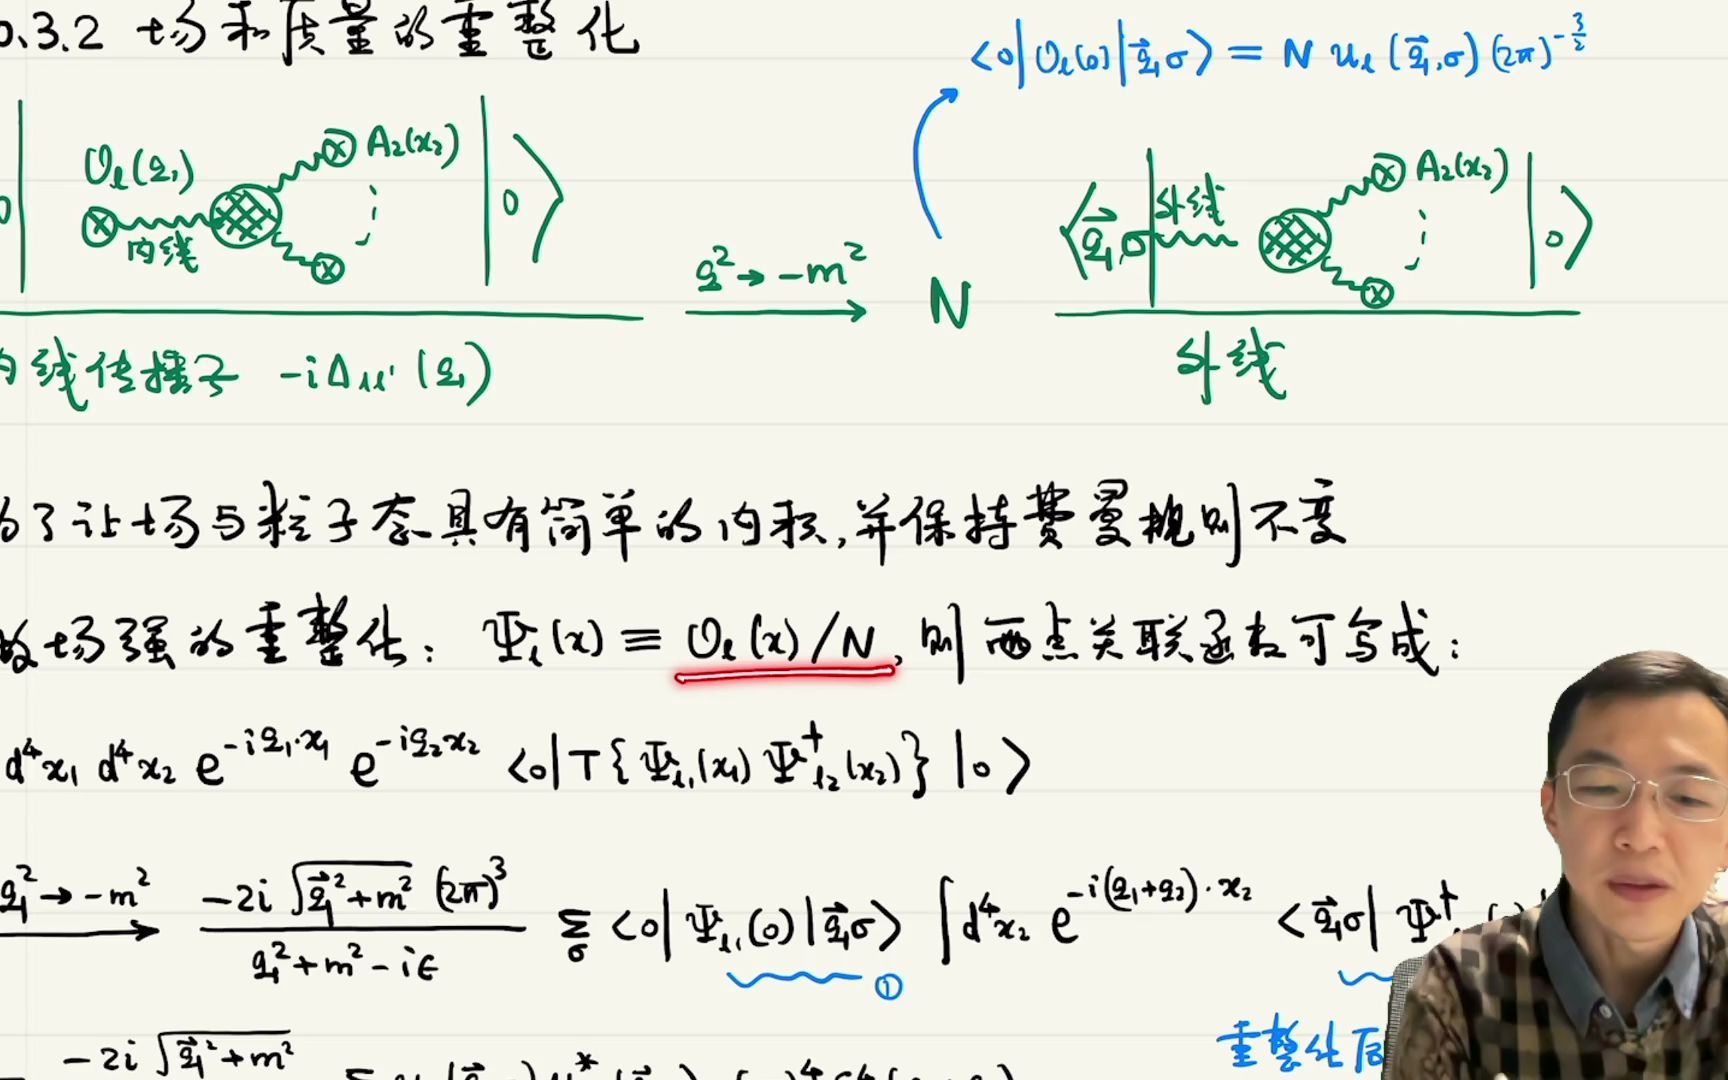 0.3.2 场和质量的重整化
<0|O_ℓ(0)|q⃗₁σ> = N u_ℓ(q⃗₁,σ)(2π)^{-3/2}
0| O_ℓ(q₁) 内线 A₂(x₂) |0>
q² → -m²
N
<q⃗₁,σ| 外线 A₂(x₂) |0>
内线传播子 -iΔ_{ℓℓ'}(q₁)
外线
为了让场与粒子态具有简单的内积,并保持费曼规则不变
做场强的重整化: Ψ_ℓ(x) ≡ O_ℓ(x)/N, 则两点关联函数可写成:
d⁴x₁ d⁴x₂ e^{-iq₁·x₁} e^{-iq₂x₂} <0|T{Ψ_{ℓ₁}(x₁) Ψ†_{ℓ₂}(x₂)}|0>
q₁² → -m² \frac{-2i \sqrt{q⃗₁²+m²} (2π)³}{q₁²+m²-iϵ} Σ_σ <0|Ψ_{ℓ₁}(0)|q⃗₁σ> ∫d⁴x₂ e^{-i(q₁+q₂)·x₂} <q⃗₁σ|Ψ†
①
重整化后
-2i \sqrt{q⃗₁²+m²}